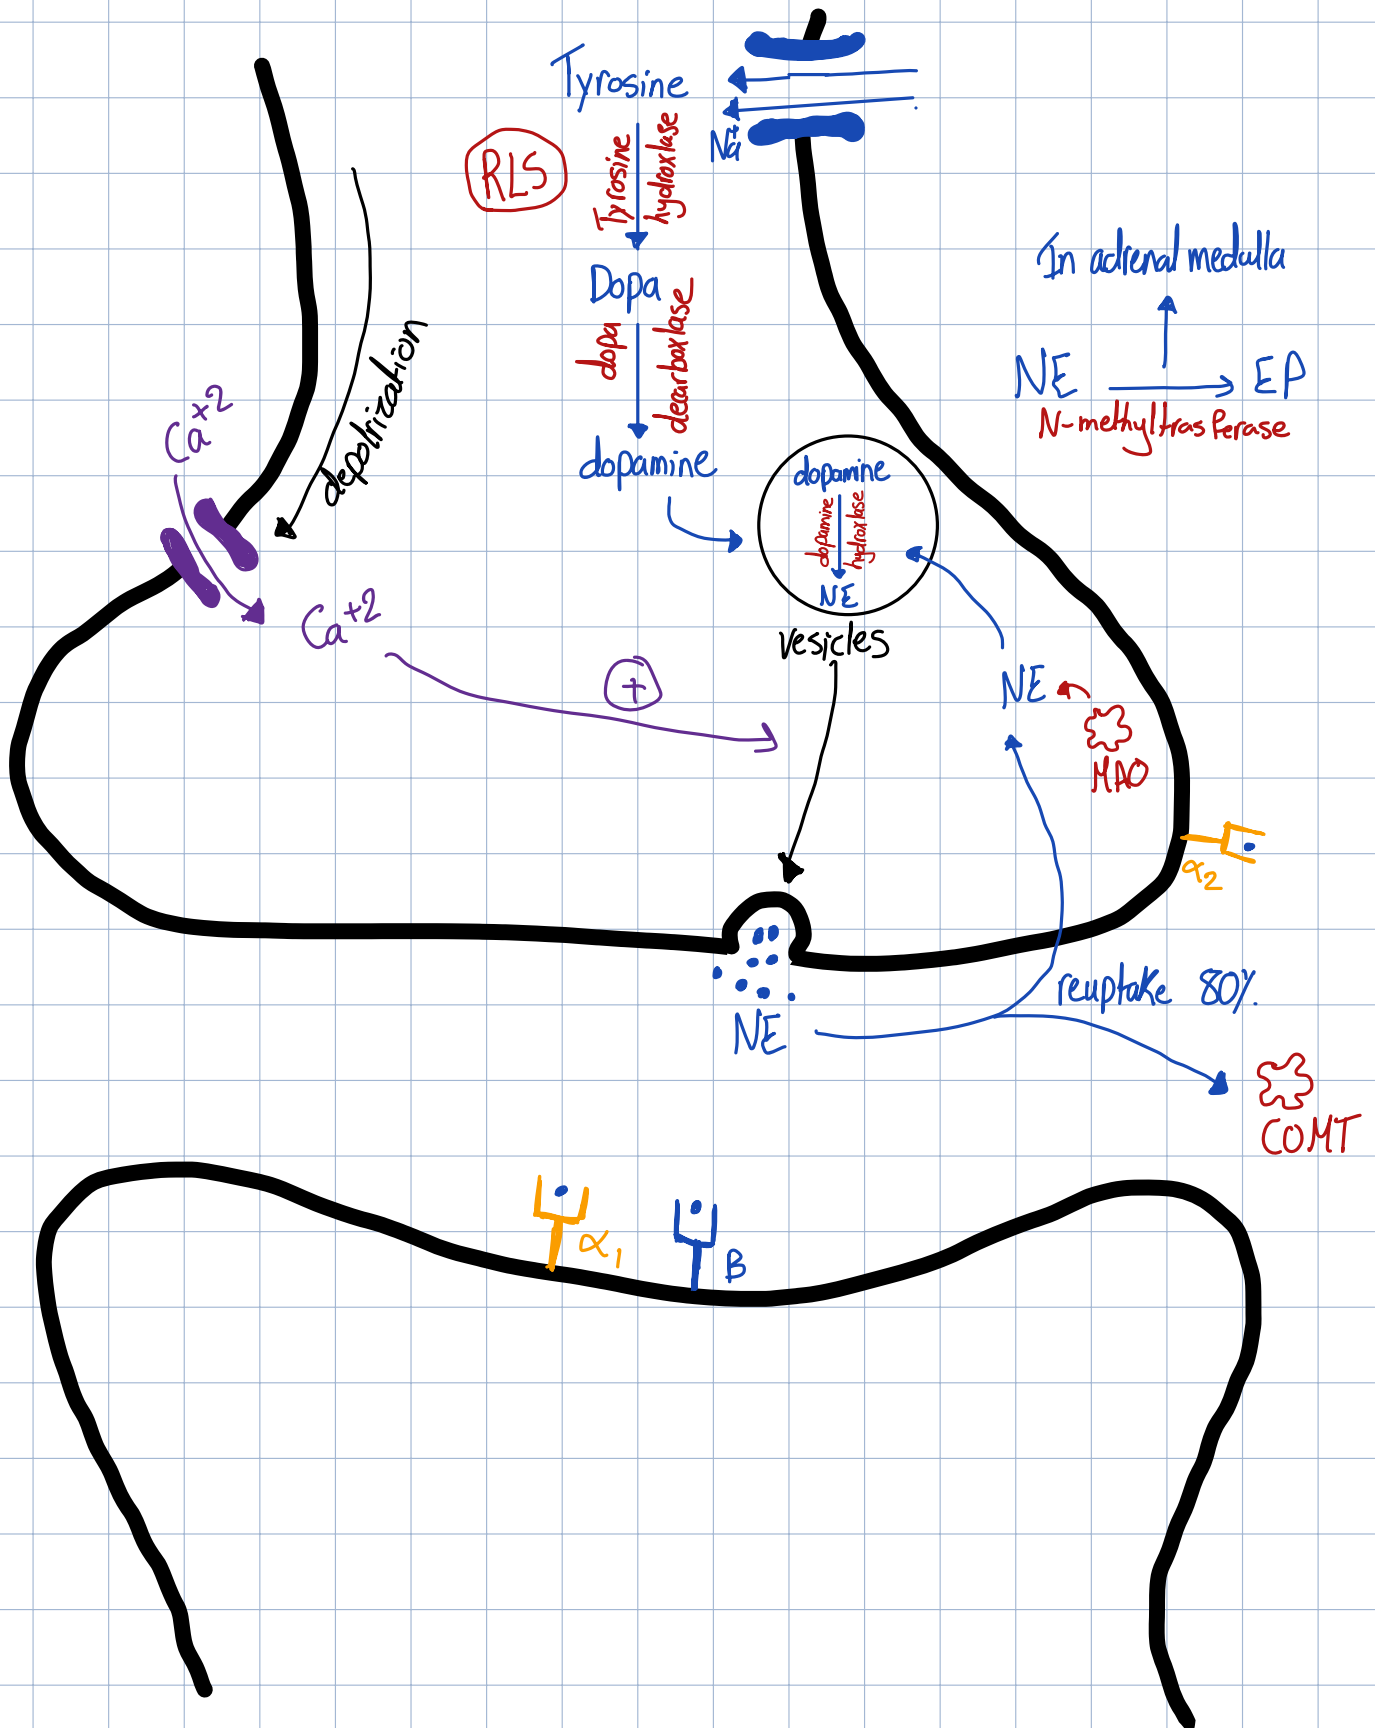 Tyrosine
Na+
RLS
Tyrosine
hydroxlase
Dopa
dopa
decarboxlase
dopamine
In adrenal medulla
NE
EP
N-methyltrasferase
Ca+2
depolrization
Ca+2
+
dopamine
dopamine
hydroxlase
NE
vesicles
NE
MAO
α2
NE
reuptake 80%
COMT
α1
B